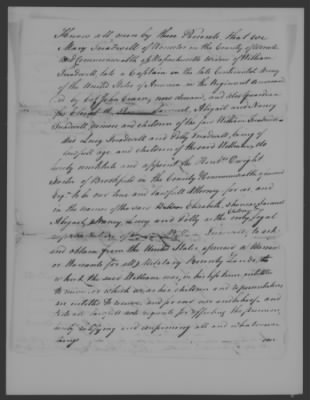 Know all men by these Presents, that we
Mary Treadwell of Worcester in the County of Worcester
and Commonwealth of Massachusetts Widow of William
Treadwell, late a Captain in the late Continental Army
of the United States of America in the Regiment command
ed by Col. John Crane, now deceased, and also Guardian
for Samuel, Abigail and Nancy
Treadwell, minors and children of the said William Treadwell
And Lucy Treadwell and Polly Treadwell, being of
lawful age and children of the said William, do
hereby constitute and appoint the Honble. Dwight
Foster of Brookfield in the County & Commonwealth aforesaid
Esqr. to be our true and lawful Attorney for us and
in the name of the said Elizabeth, Samuel
Abigail, Nancy, Lucy and Polly the only legal
to ask
and obtain from the United States aforesaid a Warrant
or Warrants for all Military Bounty Lands, to
which the said William was in his life time entitled
to receive, or which we as his children and representatives
are entitled to receive, and
to do all lawful acts requisite for effecting the premises
hereby ratifying and confirming all and whatsoever